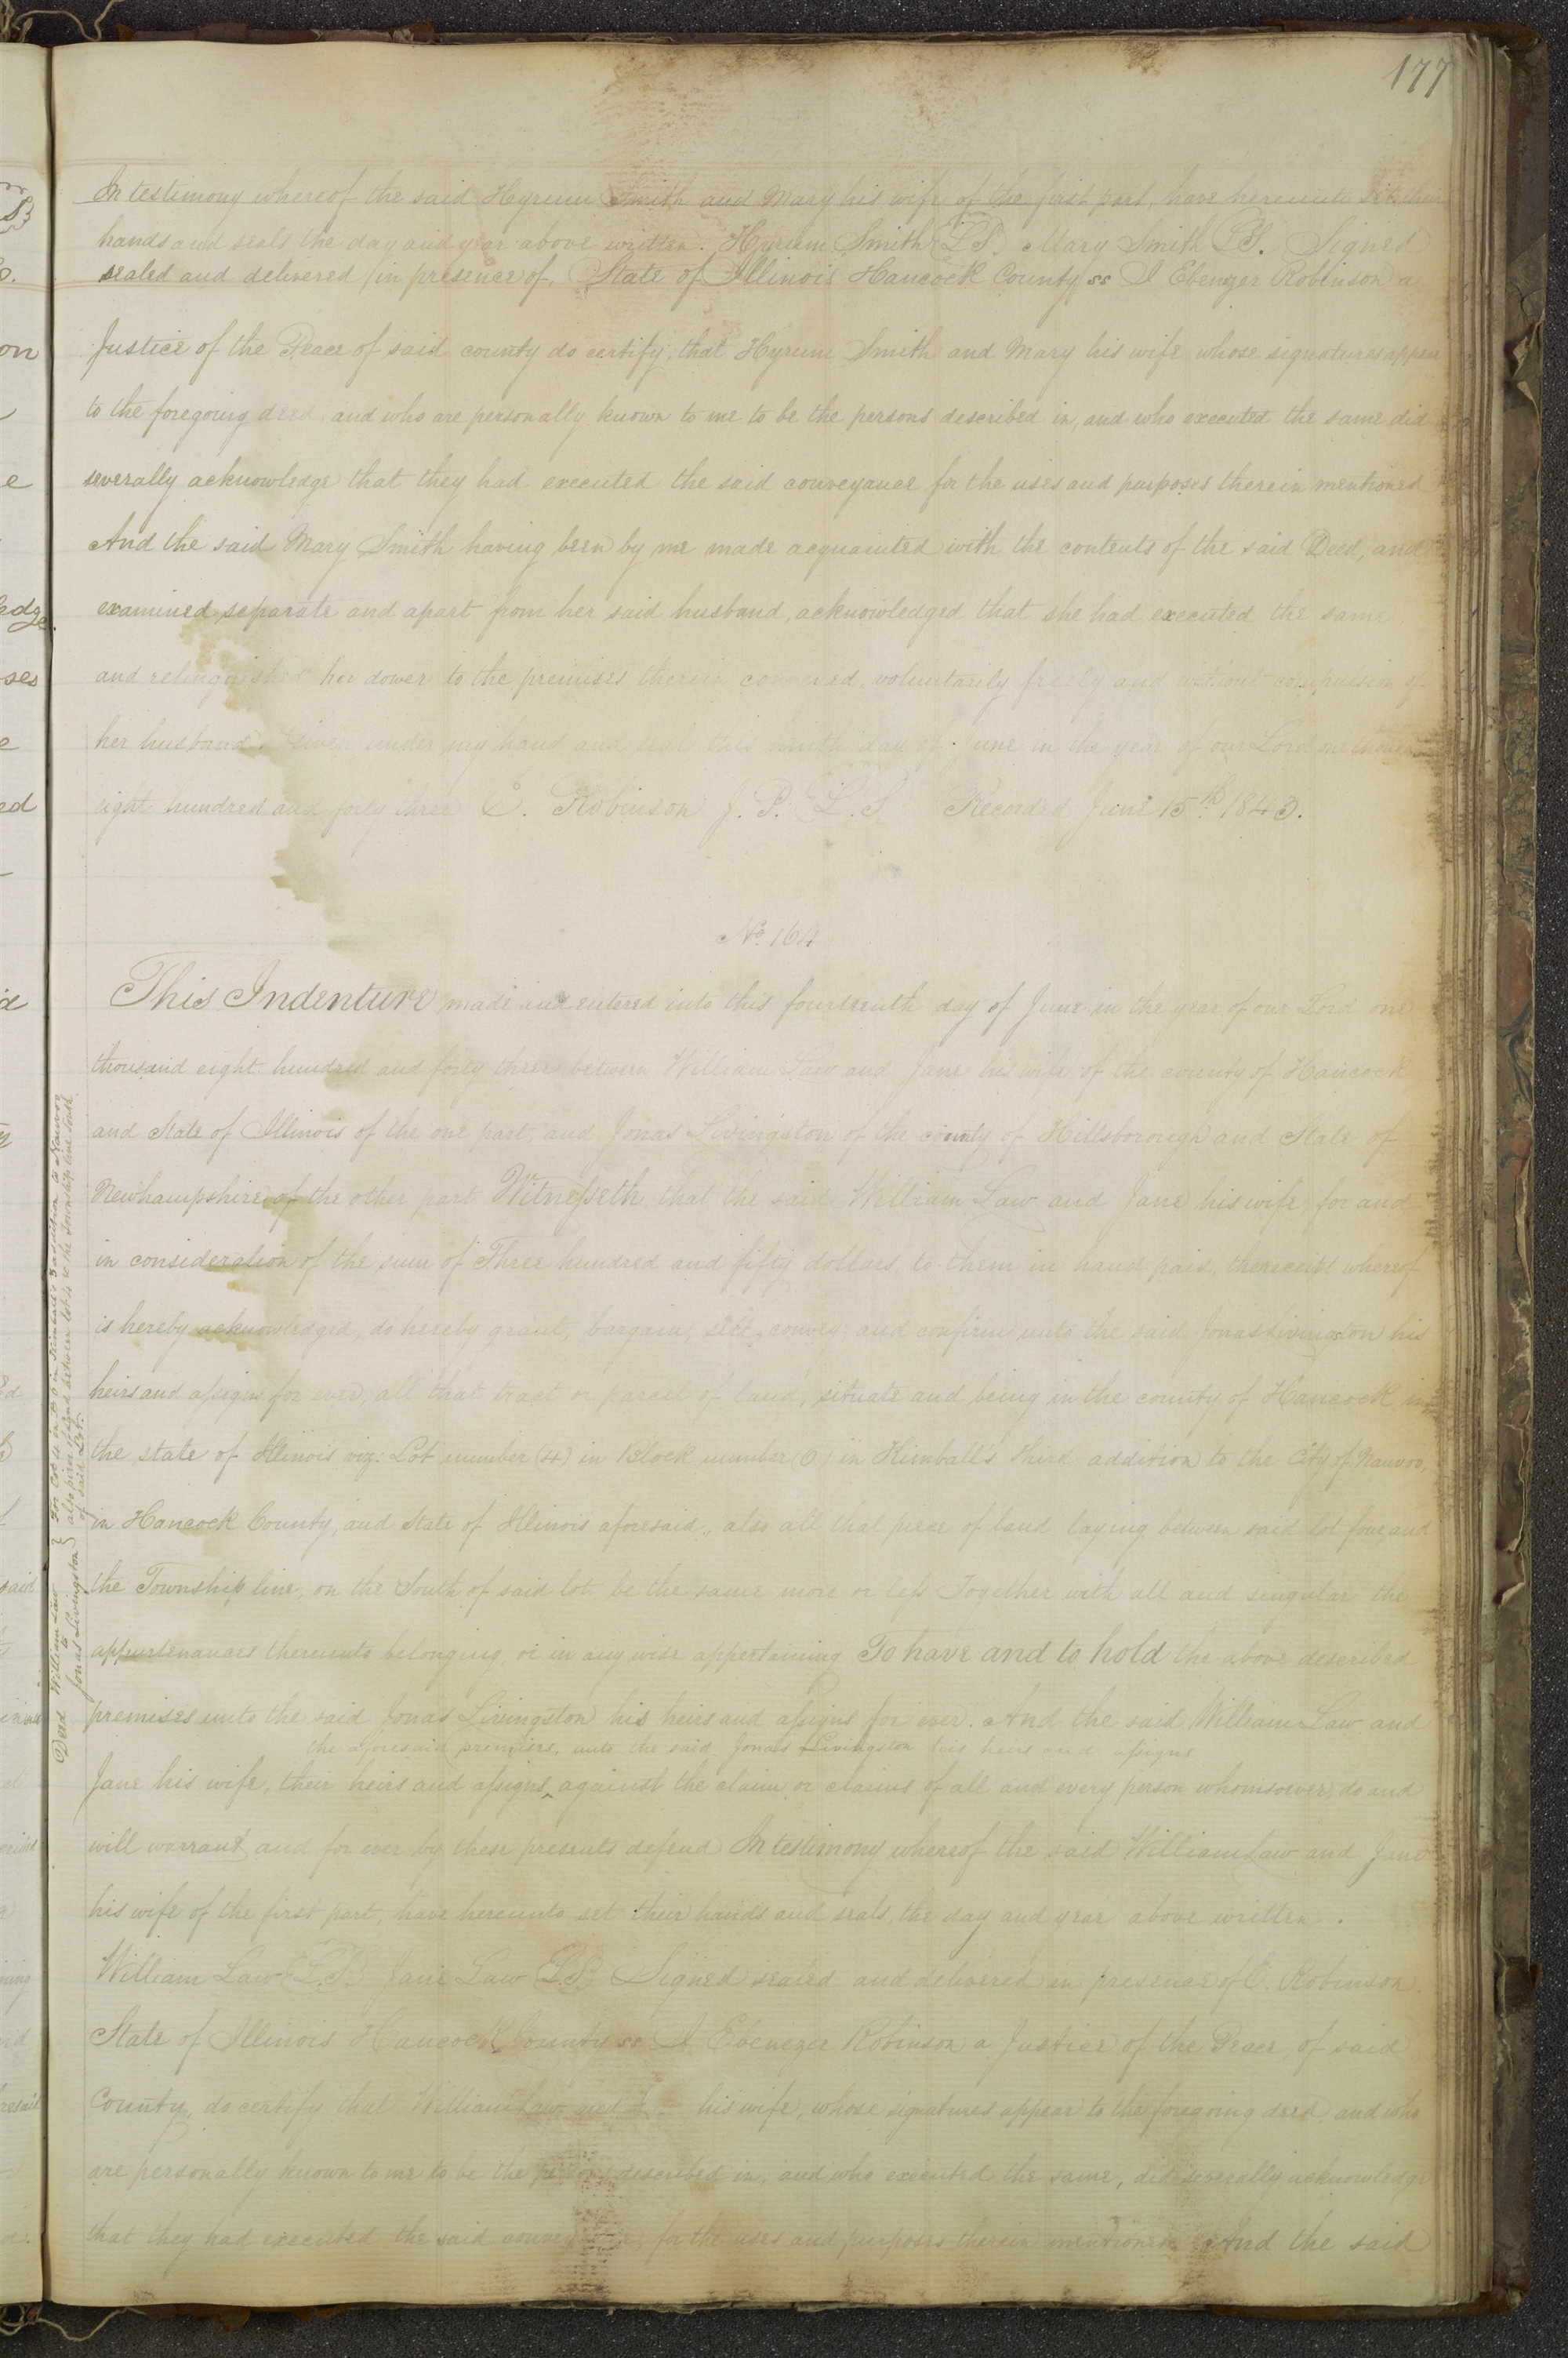 177
In testimony whereof the said Hyrum Smith and Mary his wife of the first part, have hereunto set their
hands and seals the day and year above written. Hyrum Smith L.S. Mary Smith L.S. Signed
sealed and delivered in presence of. State of Illinois Hancock County ss I Ebenezer Robinson a
Justice of the Peace of said county do certify, that Hyrum Smith and Mary his wife whose signatures appear
to the foregoing deed and who are personally known to me to be the persons described in, and who executed the same did
severally acknowledge that they had executed the said conveyance for the uses and purposes therein mentioned
And the said Mary Smith having been by me made acquainted with the contents of the said Deed, and
examined separate and apart from her said husband, acknowledged that she had executed the same,
and relinquished her dower to the premises therein conveyed, voluntarily freely and without compulsion of
her husband. Given under my hand and seal this ninth day of June in the year of our Lord one thousand
eight hundred and forty three E. Robinson J. P. L.S Recorded June 15th 1843.
No 164
This Indenture made and entered into this fourteenth day of June in the year of our Lord one
thousand eight hundred and forty three between William Law and Jane his wife of the county of Hancock
and State of Illinois of the one part, and Jonas Livingston of the county of Hillsborough and State of
Newhampshire of the other part Witnesseth that the said William Law and Jane his wife, for and
in consideration of the sum of Three hundred and fifty dollars, to them in hand paid, the receipt whereof
is hereby acknowledged, do hereby grant, bargain, sell, convey and confirm unto the said Jonas Livingston his
heirs and assigns for ever, all that tract or parcel of land, situate and being in the county of Hancock in
the state of Illinois viz: Lot number (4) in Block number in Kimball's third addition to the City of Nauvoo,
in Hancock County, and State of Illinois aforesaid, also all that piece of land laying between said lot four, and
the Township line, on the South of said lot be the same more or less Together with all and singular the
appurtenances thereunto belonging, or in any wise appertaining To have and to hold the above described
premises unto the said Jonas Livingston his heirs and assigns for ever. And the said William Law and
the aforesaid premises, unto the said Jonas Livingston his heirs and assigns
Jane his wife, their heirs and assigns ‸ against the claim or claims of all and every person whomsoever, do and
will warrant and for ever by these presents defend In testimony whereof the said William Law and Jane
his wife of the first part, have hereunto set their hands and seals, the day and year above written.
William Law L.S. Jane Law L.S. Signed sealed and delivered in presence of E. Robinson.
State of Illinois Hancock County ss I Ebenezer Robinson a Justice of the Peace, of said
County, do certify that William Law and his wife, whose signatures appear to the foregoing deed, and who
are personally known to me to be the persons described in, and who executed the same, did severally acknowledge
that they had executed the said conveyance, for the uses and purposes therein mentioned And the said
Deed William Law to Jonas Livingston
For Lot 4 in Kimball's 3 addition to Nauvoo
also piece of land between lot 4 & the Township line South
of said Lot.